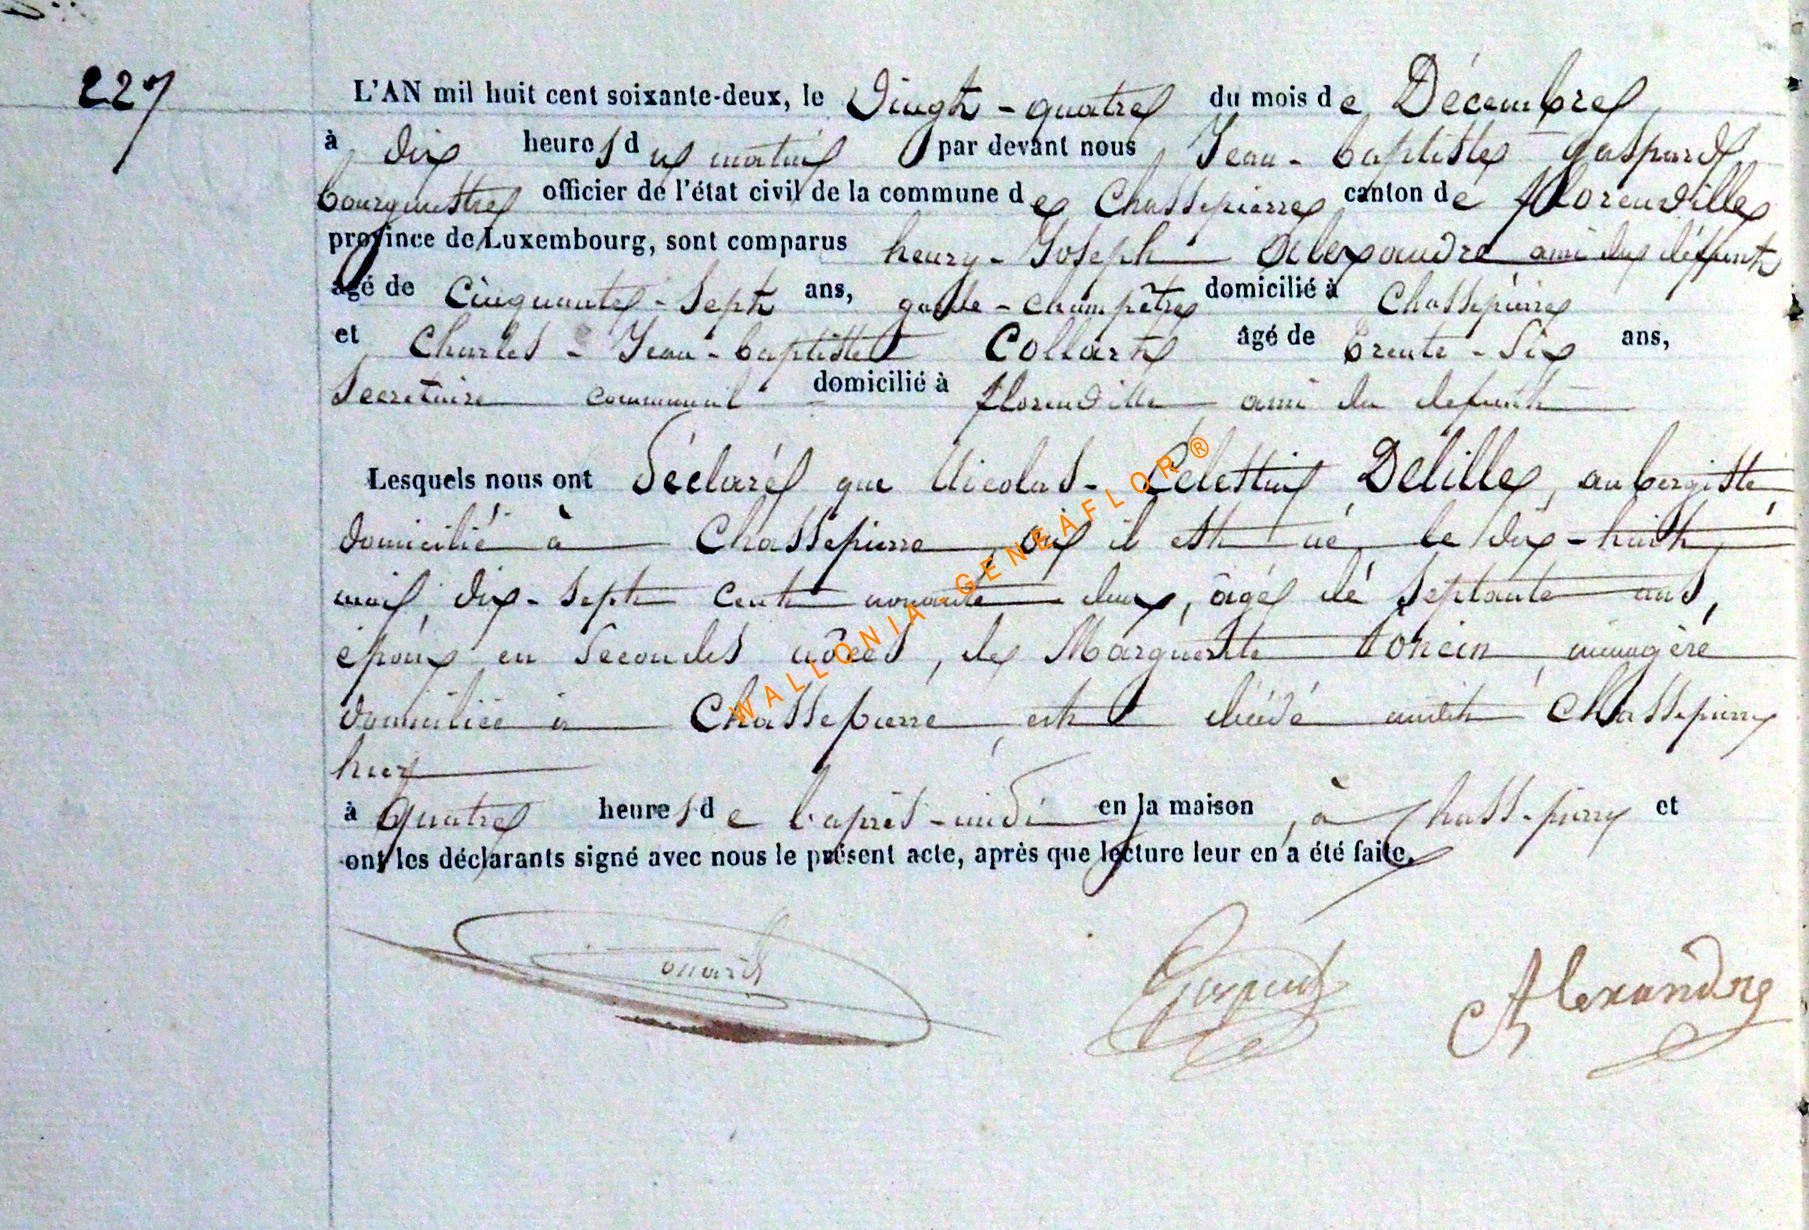 227
L'AN mil huit cent soixante-deux, le Vingt-quatre du mois de Décembre
à dix heures du matin par devant nous Jean-baptiste gaspard
bourgmestre officier de l'état civil de la commune de Chassepierre canton de florenville
province de Luxembourg, sont comparus henry-Joseph Alexandre ami du défunt
âgé de Cinquante-Sept ans, garde-champêtre domicilié à Chassepierre
et Charles-Jean-baptiste Collart âgé de trente-Six ans,
Secretaire communal domicilié à florenville ami du defunt
Lesquels nous ont Déclaré que Nicolas-Célestin Delille, aubergiste,
domicilié à Chassepierre, où il est né, le dix-huit
mai, dix-sept cent nonante deux, âgé de Septante ans,
époux en Secondes nôces, de Marguerite, ménagère
domiciliée à Chassepierre, est décédé audit Chassepierre
hier
à quatre heures de l'après-midi en la maison, à Chassepierre et
ont les déclarants signé avec nous le présent acte, après que lecture leur en a été faite.
Gaspard Alexandre
WALLONIA-GENEAFLOR®